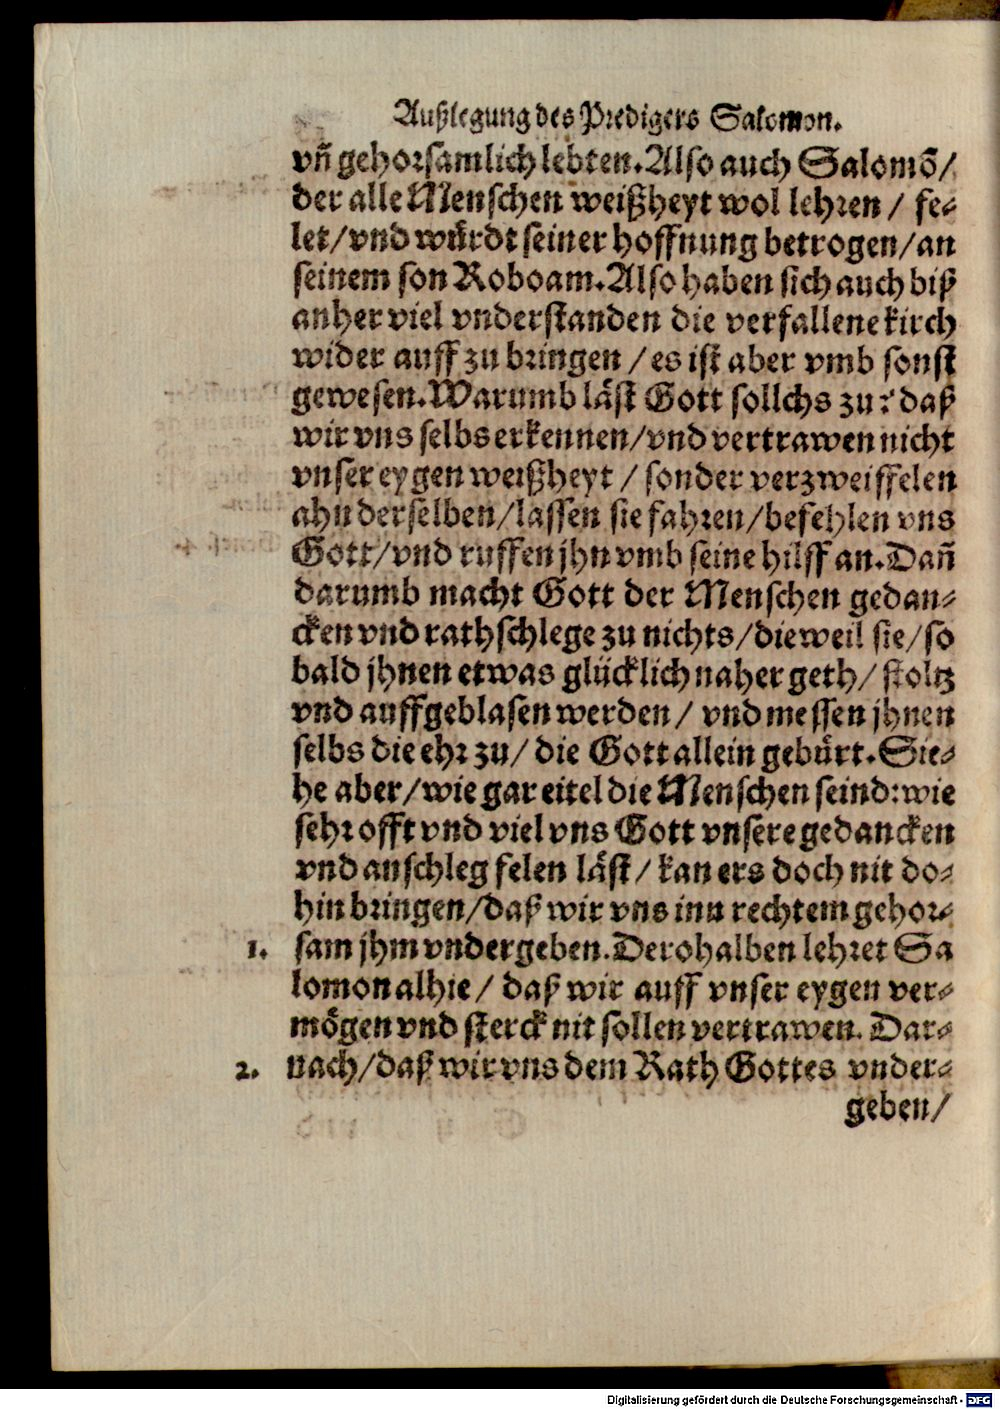 Außlegung des Predigers Salomon.
vñ gehorsamlich lebten. Also auch Salomõ/
der alle Menschen weißheyt wol lehren / fe-
let/vnd würdt seiner hoffnung betrogen/an
seinem son Roboam. Also haben sich auch biß
anher viel vnderstanden die verfallene kirch
wider auff zu bringen / es ist aber vmb sonst
gewesen. Warumb läst Gott sollchs zu? daß
wir vns selbs erkennen/vnd vertrawen nicht
vnser eygen weißheyt / sonder verzweiffelen
ahn derselben/lassen sie fahren/befehlen vns
Gott/vnd ruffen jhn vmb seine hilff an. Dañ
darumb macht Gott der Menschen gedan-
cken vnd rathschlege zu nichts/dieweil sie/so
bald jhnen etwas glücklich naher geth/ stoltz
vnd auffgeblasen werden / vnd messen jhnen
selbs die ehr zu/ die Gott allein gebürt. Sie-
he aber/wie gar eitel die Menschen seind: wie
sehr offt vnd viel vns Gott vnsere gedancken
vnd anschleg felen läst / kan ers doch nit do-
hin bringen/daß wir vns inn rechtem gehor-
1. sam jhm vndergeben. Derohalben lehret Sa
lomon alhie/ daß wir auff vnser eygen ver-
mögen vnd sterck nit sollen vertrawen. Dar-
2. nach/daß wir vns dem Rath Gottes vnder-
geben/
Digitalisierung gefördert durch die Deutsche Forschungsgemeinschaft - DFG